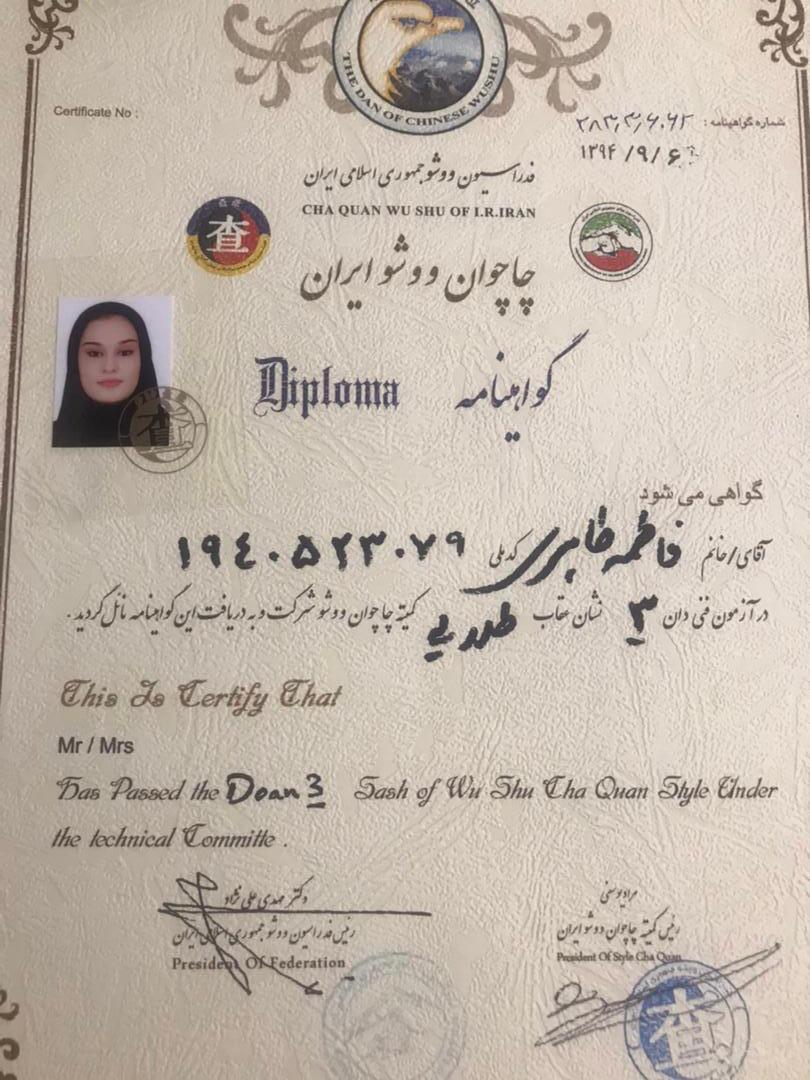 THE DAN OF CHINESE WUSHU
Certificate No :
شماره گواهینامه :
۱۳۹۴/۹/۶
فدراسیون ووشو جمهوری اسلامی ایران
CHA QUAN WU SHU OF I.R.IRAN
查
چاچوان ووشو ایران
Diploma گواهینامه
گواهی می شود
آقای/خانم فاطمه طاهری کدملی ۱۹۴۰۵۲۳۰۷۹
در آزمون فنی دان ۳ نشان عقاب طلایی کمیته چاچوان ووشو شرکت و به دریافت این گواهینامه نائل گردید .
This Is Certify That
Mr / Mrs
Has Passed the Doan 3 Sash of Wu Shu Cha Quan Style Under
the technical Committe .
دکتر مهدی علی نژاد
رئیس فدراسیون ووشو جمهوری اسلامی ایران
President Of Federation
مراد یوسفی
رئیس کمیته چاچوان ووشو ایران
President Of Style Cha Quan
查